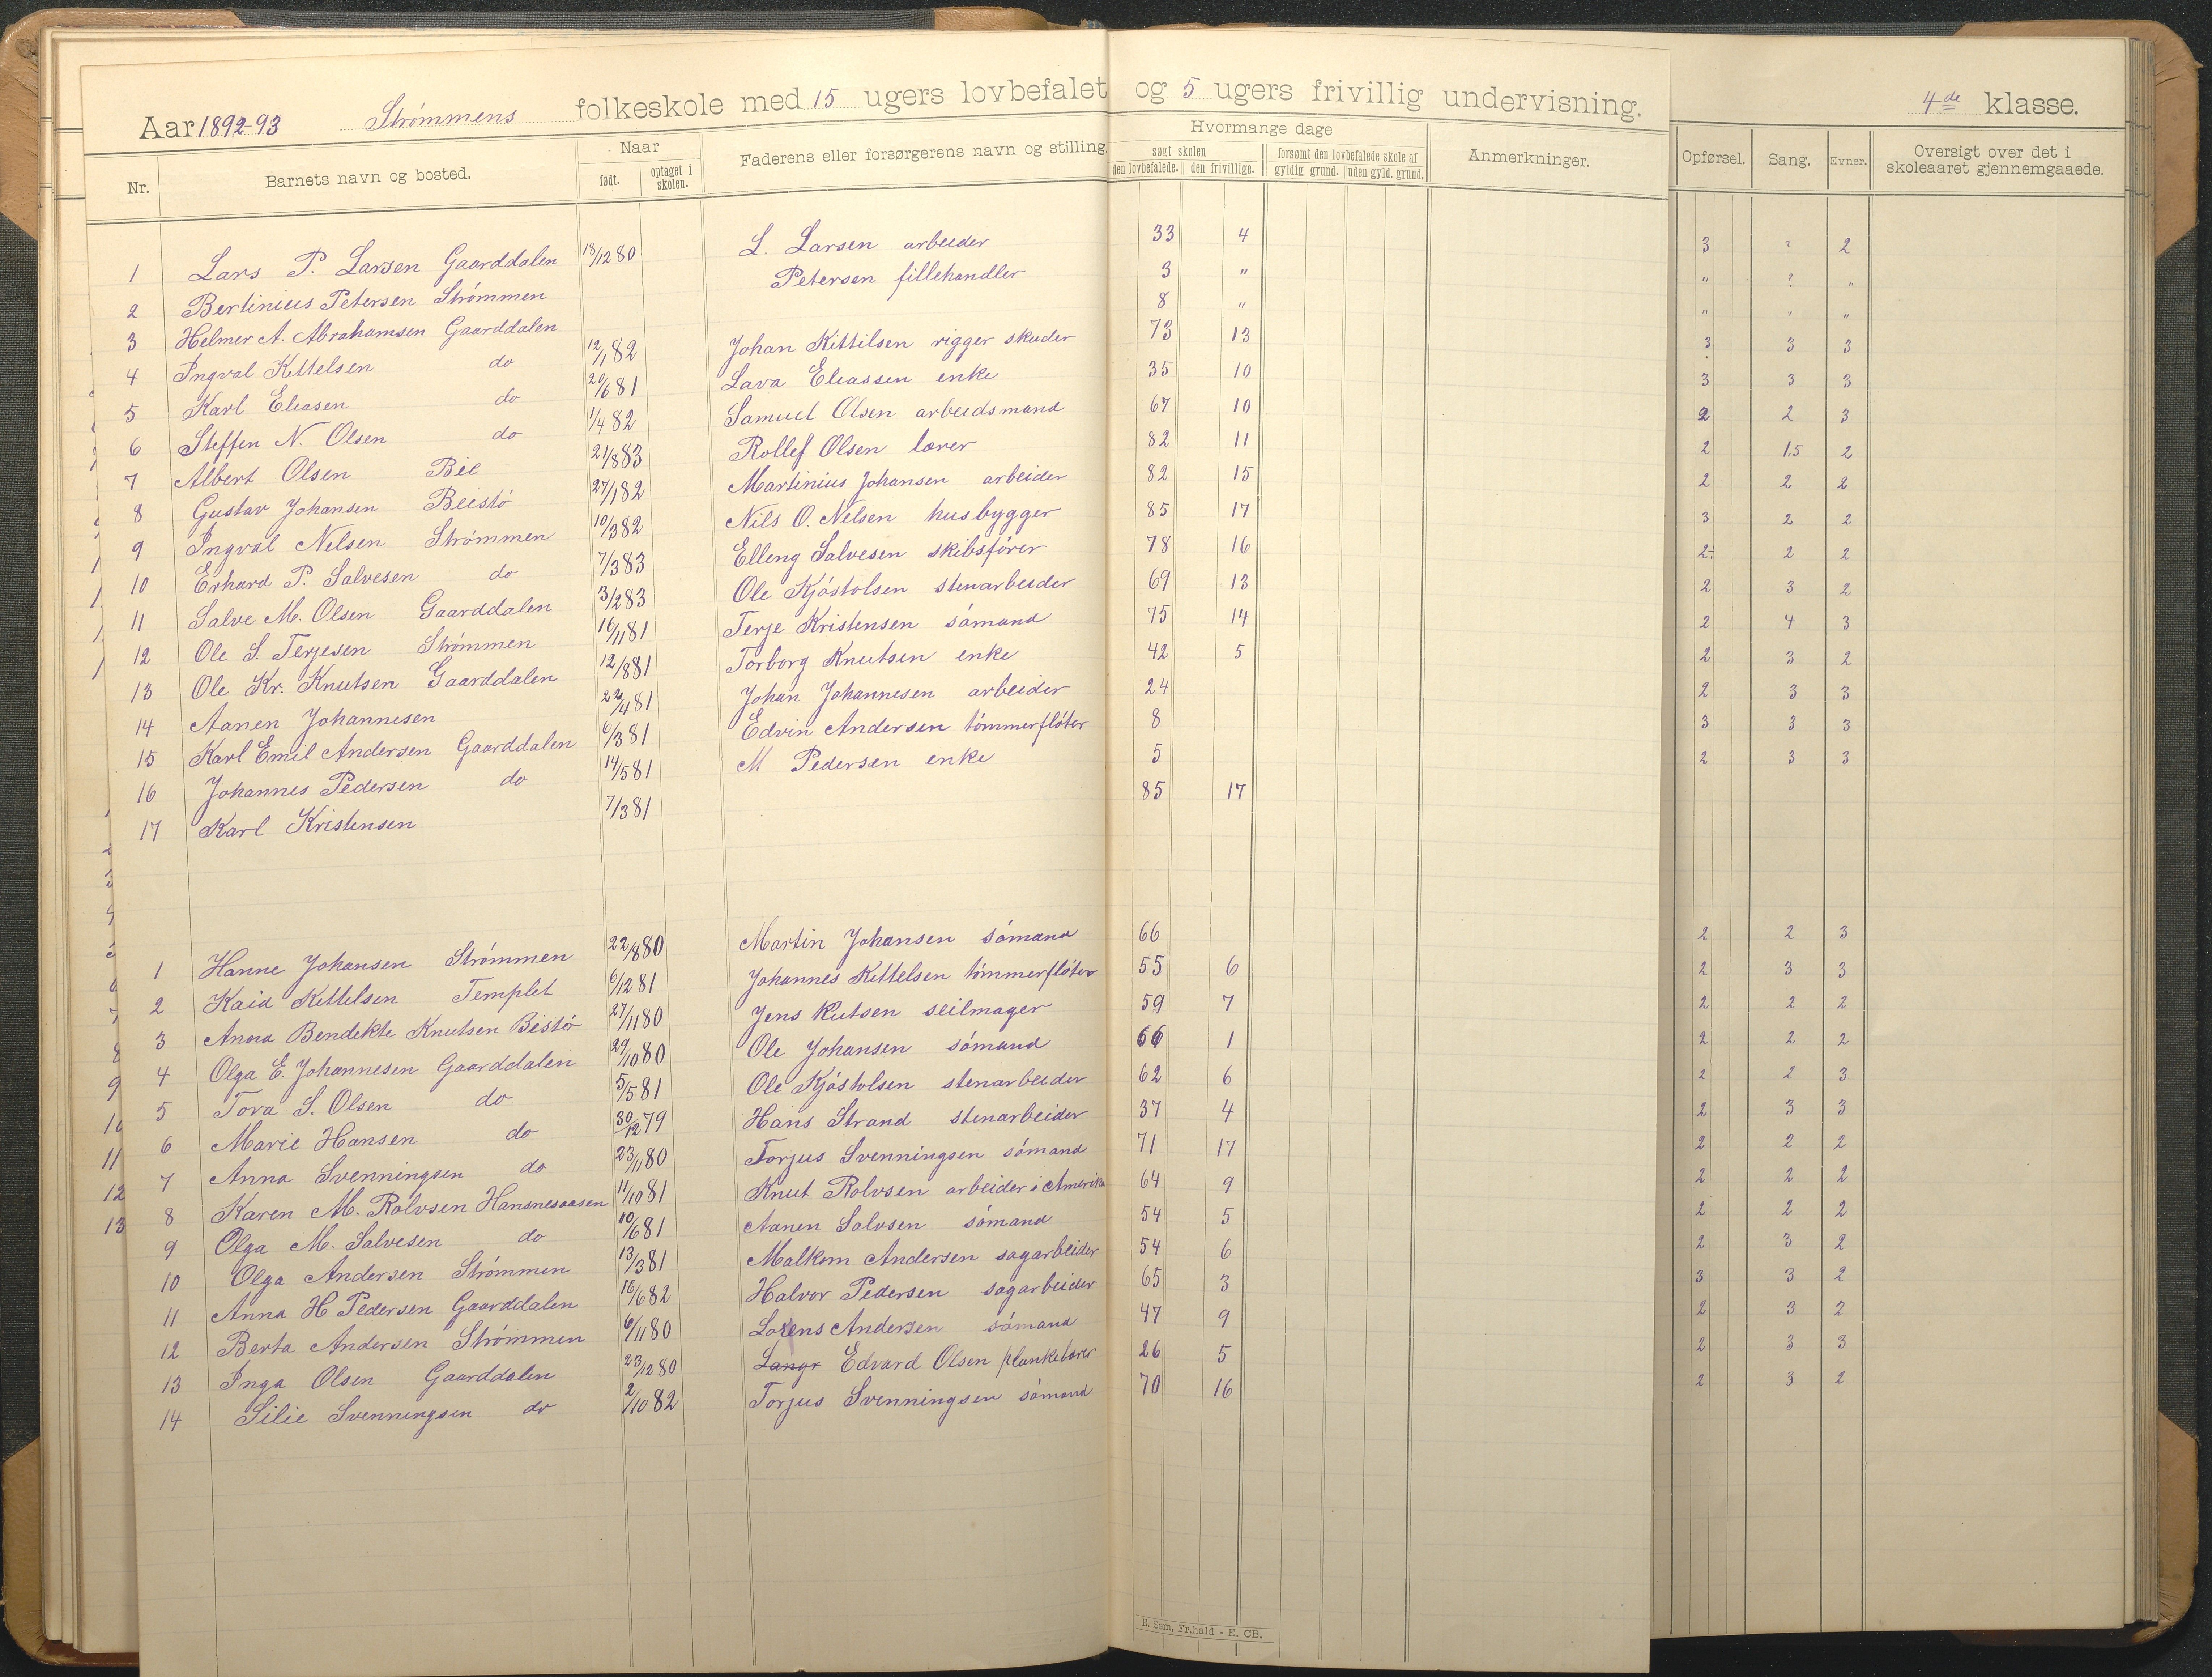 Aar 1892-93 Strømmens folkeskole med 15 ugers lovbefalet og 5 ugers frivillig undervisning. 4de klasse.
Nr. Barnets navn og bosted. Naar født. optaget i skolen. Faderens eller forsørgerens navn og stilling. Hvormange dage søgt skolen den lovbefalede. den frivillige. forsømt den lovbefalede skole af gyldig grund. uden gyld. grund. Anmerkninger. Opførsel. Sang. Evner. Oversigt over det i skoleaaret gjennemgaaede.
1 Lars P. Larsen Gaarddalen 18/12 80 L. Larsen arbeider 33 4 3 ? 2
2 Bertinius Petersen Strømmen Petersen fillehandler 3 " " ? "
3 Helmer A. Abrahamsen Gaarddalen 8 " " " "
4 Ingval Kittelsen do 12/1 82 Johan Kittilsen rigger skuder 73 13 3 3 3
5 Karl Eleasen do 20/6 81 Lava Eleassen enke 35 10 3 3 3
6 Steffen N. Olsen do 1/4 82 Samuel Olsen arbeidsmand 67 10 2 2 3
7 Albert Olsen Bie 21/8 83 Rollef Olsen lærer 82 11 2 1.5 2
8 Gustav Johansen Beistø 27/1 82 Martinius Johansen arbeider 82 15 2 2 2
9 Ingval Nelsen Strømmen 10/3 82 Nils O. Nelsen husbygger 85 17 3 2 2
10 Erhard P. Salvesen do 7/3 83 Elleng Salvesen skibsfører 78 16 2÷ 2 2
11 Salve M. Olsen Gaarddalen 3/2 83 Ole Kjøstolsen stenarbeider 69 13 2 3 2
12 Ole S. Terjesen Strømmen 16/11 81 Terje Kristensen sømand 75 14 2 4 3
13 Ole Kr. Knutsen Gaarddalen 12/8 81 Torborg Knutsen enke 42 5 2 3 2
14 Aanen Johannesen 22/4 81 Johan Johannesen arbeider 24 2 3 3
15 Karl Emil Andersen Gaarddalen 6/3 81 Edvin Andersen tømmerfløter 8 3 3 3
16 Johannes Pedersen do 14/5 81 M Pedersen enke 5 2 3 3
17 Karl Kristensen 7/3 81 85 17
1 Hanne Johansen Strømmen 22/8 80 Martin Johansen sømand 66 2 2 3
2 Kaia Kittelsen Templet 6/12 81 Johannes Kittelsen tømmerfløter 55 6 2 3 3
3 Anna Bendekte Knutsen Bistø 27/11 80 Jens Kutsen seilmager 59 7 2 2 2
4 Olga E. Johannesen Gaarddalen 29/10 80 Ole Johansen sømand 66 1 2 2 2
5 Tora S. Olsen do 5/5 81 Ole Kjøstolsen stenarbeider 62 6 2 2 3
6 Marie Hansen do 30/12 79 Hans Strand stenarbeider 37 4 2 3 3
7 Anna Svenningsen do 23/11 80 Torjus Svenningsen sømand 71 17 2 2 2
8 Karen M. Rolvsen Hansnesaasen 11/10 81 Knut Rolvsen arbeider i Amerika 64 9 2 2 2
9 Olga M. Salvesen do 10/6 81 Aanen Salvsen sømand 54 5 2 2 2
10 Olga Andersen Strømmen 13/3 81 Malkom Andersen sagarbeider 54 6 2 3 2
11 Anna H Pedersen Gaarddalen 16/6 82 Halvor Pedersen sagarbeider 65 3 3 3 2
12 Berta Andersen Strømmen 6/11 80 Lorens Andersen sømand 47 9 2 3 2
13 Inga Olsen Gaarddalen 23/12 80 Langr Edvard Olsen plankebærer 26 5 2 3 3
14 Silie Svenningsen do 2/10 82 Torjus Svenningsen sømand 70 16 2 3 2
E. Sem, Fr.hald - E. CB.